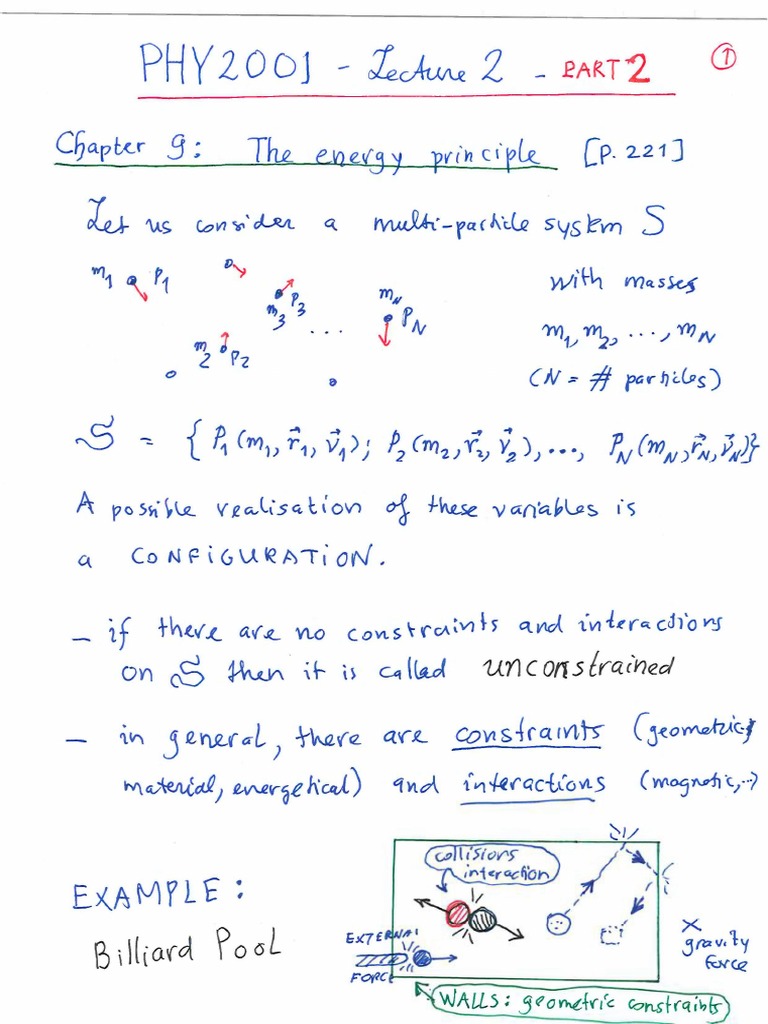 PHY2001 - Lecture 2 - PART 2
①
Chapter 9: The energy principle [P. 221]
Let us consider a multi-particle system S
m₁ P₁
m₃ P₃
...
m_N P_N
m₂ P₂
with masses
m₁, m₂, ..., m_N
(N = # particles)
S = { P₁(m₁, r⃗₁, v⃗₁); P₂(m₂, r⃗₂, v⃗₂), ..., P_N(m_N, r⃗_N, v⃗_N)}
A possible realisation of these variables is
a CONFIGURATION.
- if there are no constraints and interactions
on S then it is called unconstrained
- in general, there are constraints (geometric,
material, energetical) and interactions (magnetic,..)
EXAMPLE:
Billiard Pool
collisions
interaction
EXTERNAL
FORCE
× gravity
force
WALLS: geometric constraints